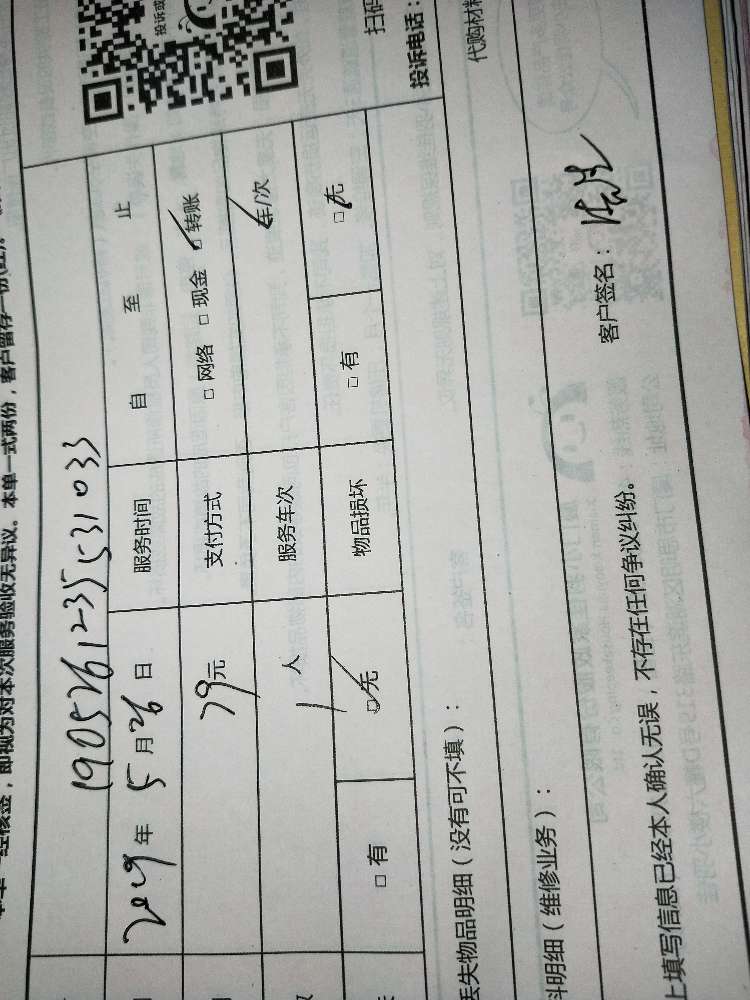 经核签，即视为对本次服务验收无异议。本单一式两份，客户留存一份
投诉或
扫码
投诉电话：
190526123553 1033
2019年5月26日 服务时间 自 至 止
79元 支付方式 □网络 □现金 □转账
1人 服务车次 车/次
□有 □无 物品损坏 □有 □无
代购材料
丢失物品明细（没有可不填）：
料明细（维修业务）：
上填写信息已经本人确认无误，不存在任何争议纠纷。 客户签名：